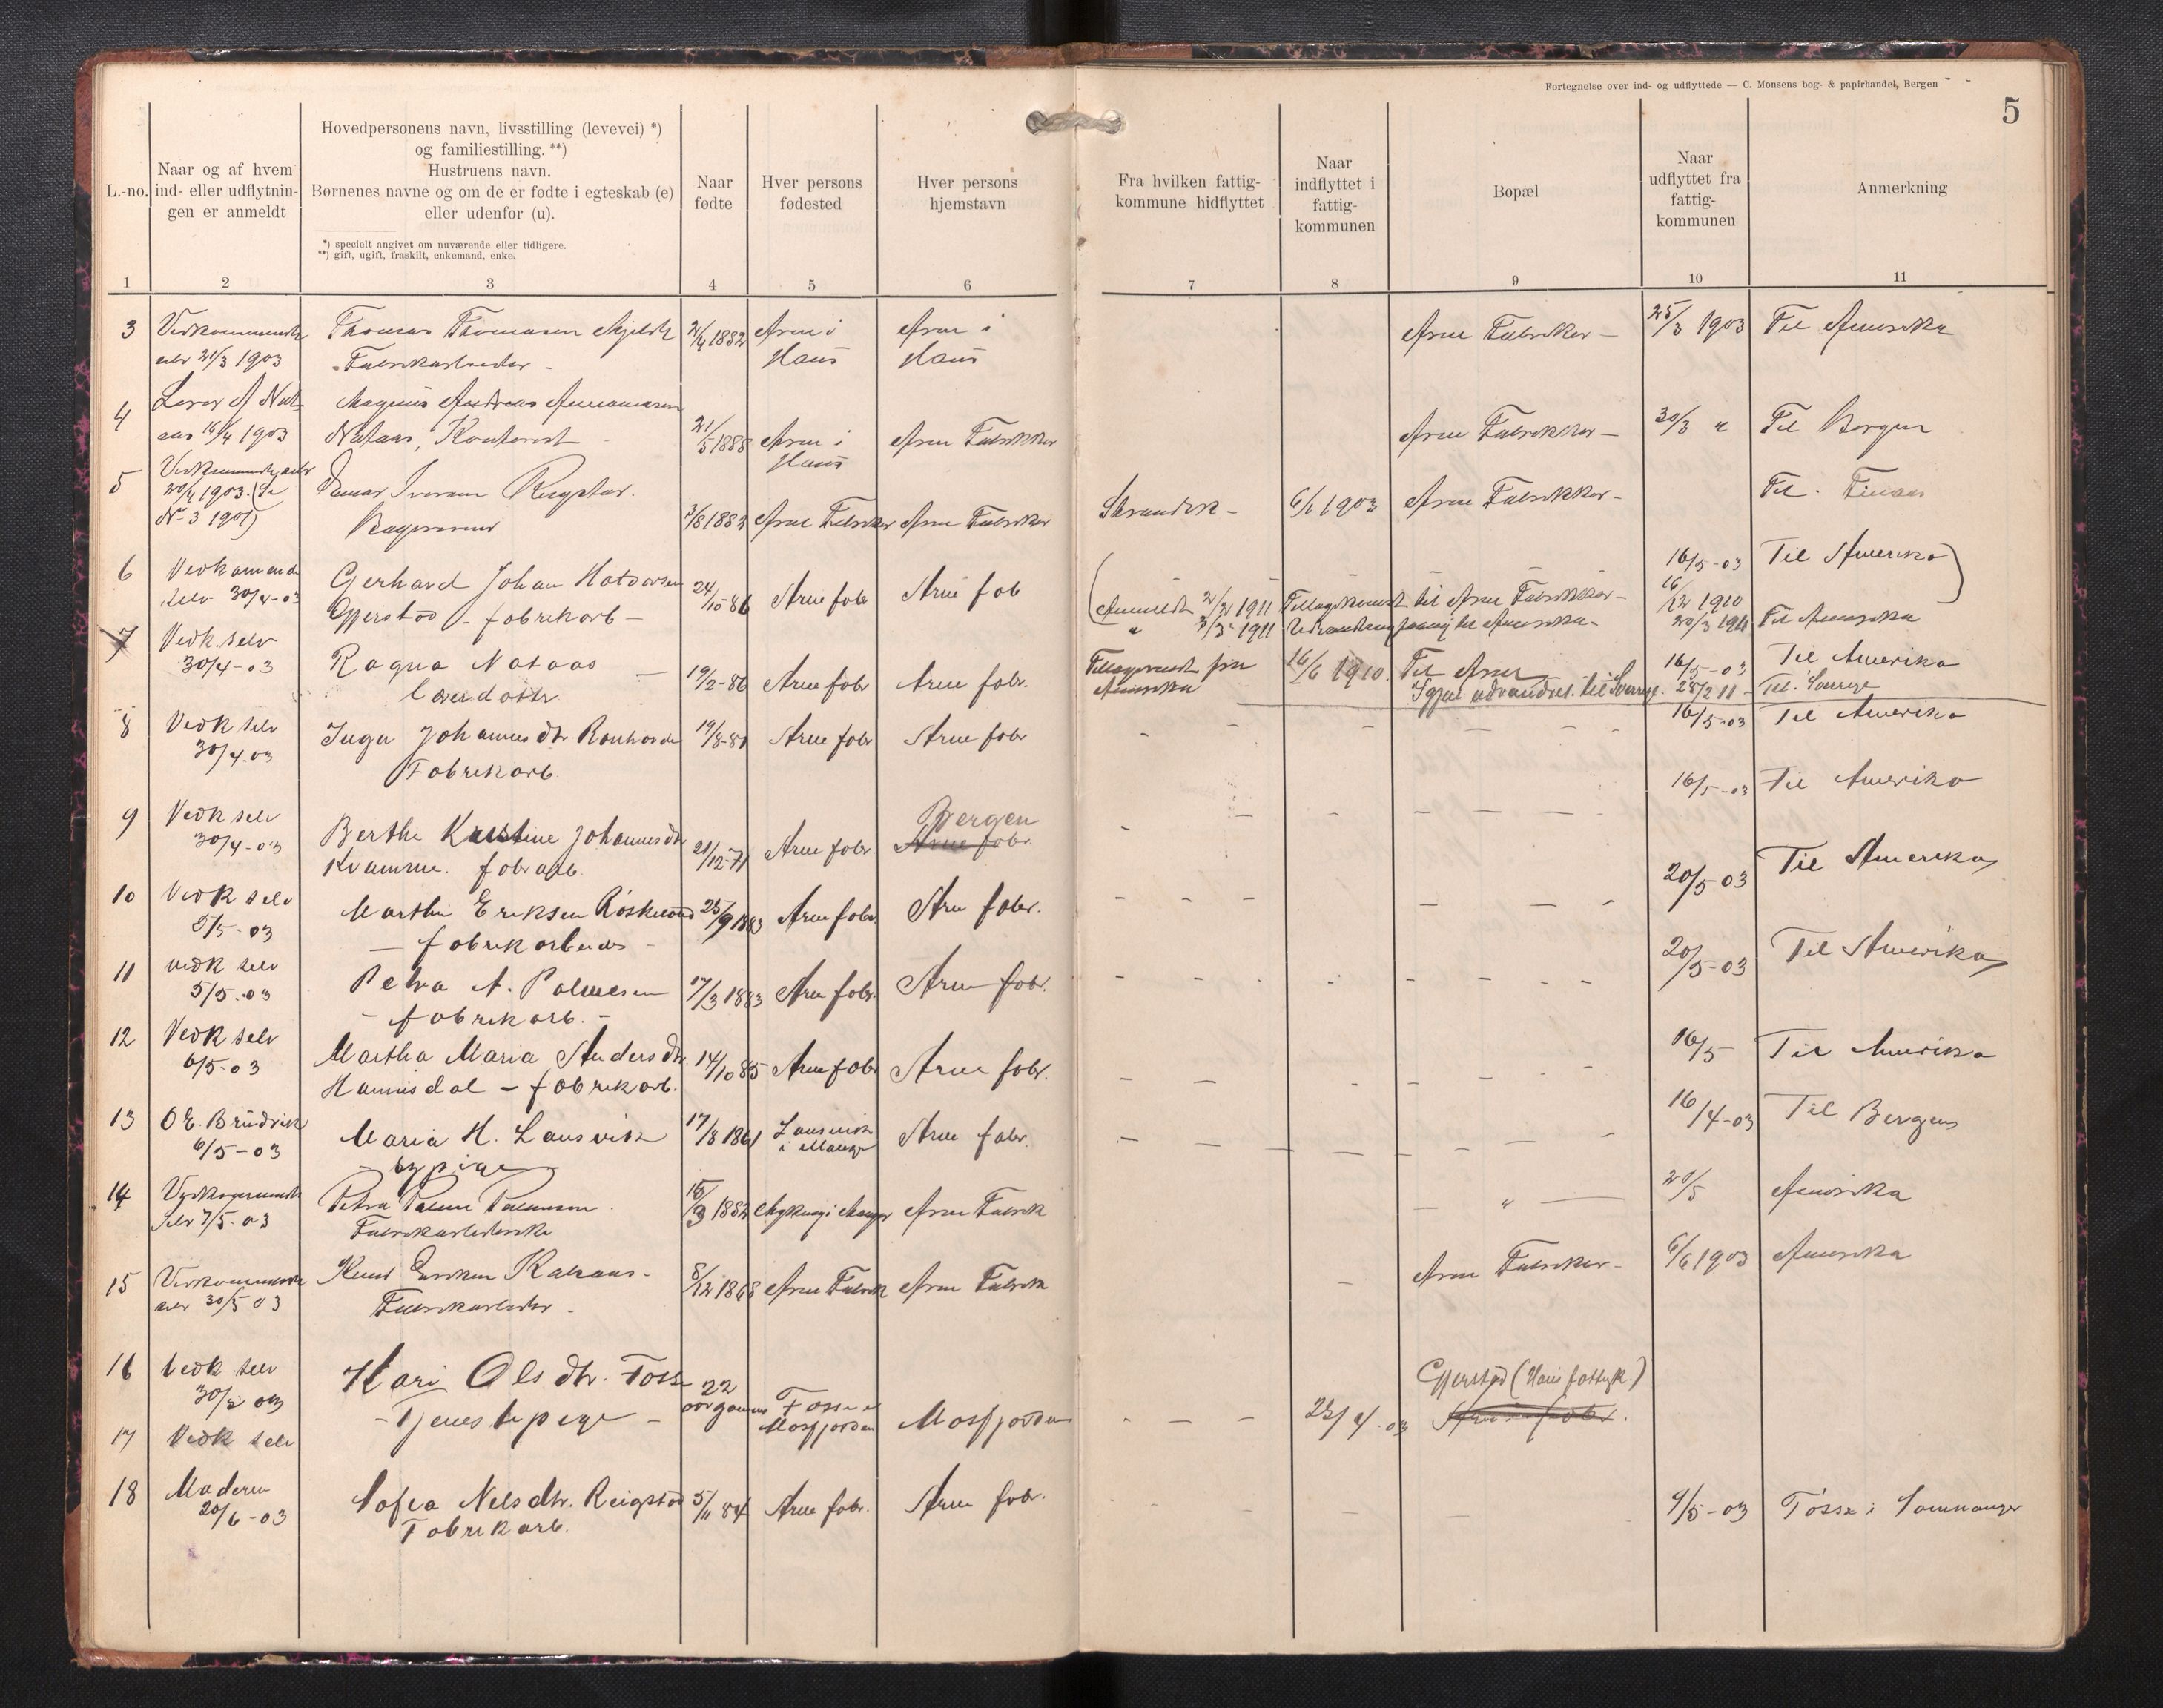 Fortegnelse over ind- og udflyttede — C. Monsens bog- & papirhandel, Bergen
5
L.-no.
Naar og af hvem
ind- eller udflytnin-
gen er anmeldt
Hovedpersonens navn, livsstilling (levevei) *)
og familiestilling. **)
Hustruens navn.
Børnenes navne og om de er fødte i egteskab (e)
eller udenfor (u).
*) specielt angivet om nuværende eller tidligere.
**) gift, ugift, fraskilt, enkemand, enke.
Naar
fødte
Hver persons
fødested
Hver persons
hjemstavn
Fra hvilken fattig-
kommune hidflyttet
Naar
indflyttet i
fattig-
kommunen
Bopæl
Naar
udflyttet fra
fattig-
kommunen
Anmerkning
1 2 3 4 5 6 7 8 9 10 11
3 Vedkommende Thomas Thomasen 2/4 1882 Arne i Arne i Arne Fabrikker — 25/3 1903 Til Amerika
selv 21/3 1903 Fabrikarbeider - Haus Haus
4 Lærer Magnus Andreas
16/4 1903 Nataas, Kontorist 21/5 1888 Arne i Arne Fabrikker Arne Fabrikker — 30/3 " Til Bergen
Haus
5 Vedkommende selv
20/4 1903. (Se Einar Iversen
No 3 1901) 3/8 1883 Arne Fabrikker Arne Fabrikker 6/1 1903 Arne Fabrikker — Til
6 Vedkommende Gerhard Johan 24/10-86 Arne fab Arne fab 16/5-03 Til Amerika
selv 30/4-03 Gjerstad - fabrikarb —
Anmeldt 2/2 1911 Tilbagekommet til Arne Fabrikker — 16/12 1910
" 3/3 1911 til Amerika — 20/3 1911 Til Amerika
7 Vedk. selv Ragna Nataas — 19/2-86 Arne fabr Arne fabr. fra 16/6 1910. Til Arne 16/5-03 Til Amerika
30/4-03 Amerika Igjen udvandret til Sverige. 28/2 11 - Til Sverige
8 Vedk selv Inga Johannesdtr 19/8-81 Arne fabr Arne fabr 16/5-03 Til Amerika
30/4-03 Fabrikarb
9 Vedk selv Berthe Kristine Johannesdtr 21/12-71 Arne fabr Bergen 16/5-03 Til Amerika
30/4-03 Kvamme. fabrarb. Arne fabr.
10 Vedk selv Marthin Eriksen 25/9 1883 Arne fabr. Arne fabr. 20/5-03 Til Amerika
5/5-03 — fabrikarbeider -
11 vedk selv Petra A. Palmesen 17/3 1883 Arne fabr. Arne fabr. 20/5-03 Til Amerika
5/5-03 - fabrikarb. -
12 Vedk selv Martha Maria Andersdtr. 14/10 85 Arne fabr Arne fabr. 16/5 Til Amerika
6/5-03 Hannisdal — fabrikarb.
13 O E. Brüdvik Maria H. Landsvik 17/8 1861 Arne fabr. 16/4-03 Til Bergen
6/5-03 sypige i Manger
14 Vedkommende Petra Palmesen 15/3 1882 i Manger Arne Fabrik " 20/5 Amerika
selv 7/5-03 Fabrikarbeiderske
15 Vedkommende Knud Eriksen 8/12 1868 Arne Fabrik Arne Fabrik Arne Fabrikker — 6/6 1903 Amerika
selv 30/5 03 Fabrikarbeider -
16 Vedk selv Kari Olsdtr. Fosse 22 Fosse i Mofjorden 23/4-03 Gjerstad (Haus fattigk.)
30/5 03 - Tjenestepige - aar gammel Mofjorden Arne fabr.
17 Vedk selv
18 Moderen Sofia Nelsdtr. Reigstad 5/11 84 Arne fabr. Arne fabr. 4/5-03 Tøsse i Samnanger
20/6-03 Fabrikarb.